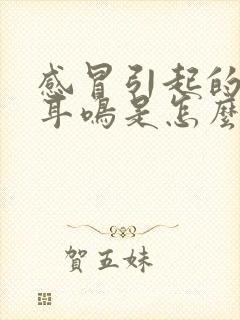 感冒引起的
耳鳴是怎麼
賀五妹